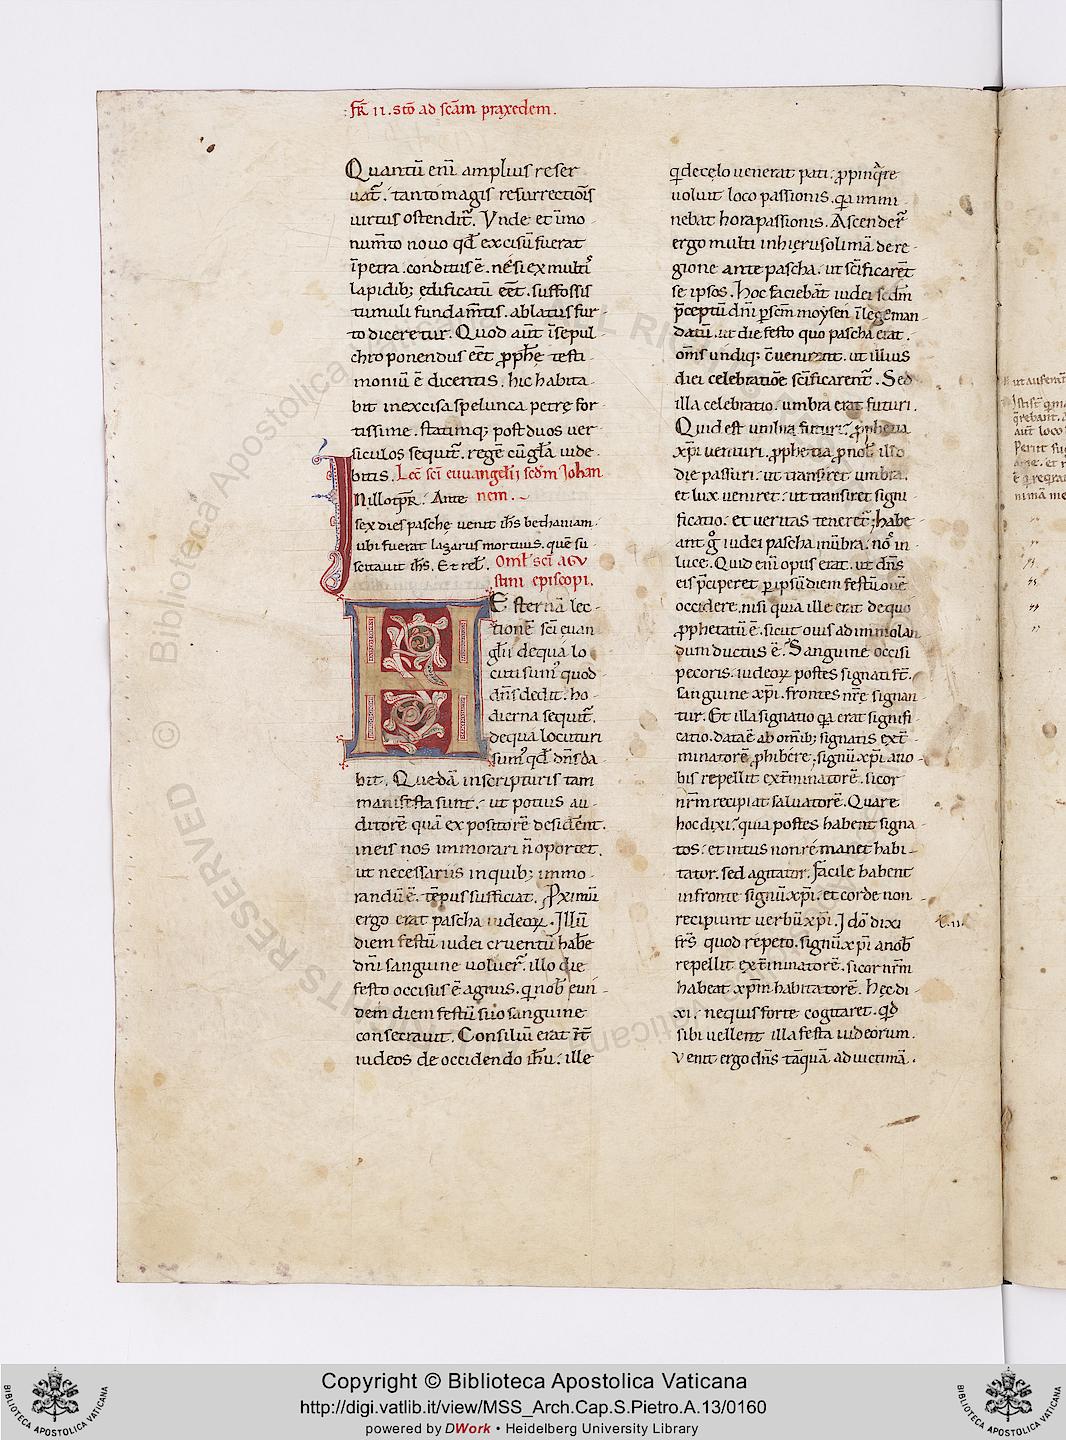 :fR̄ II. stō ad scām praxedem.
Quantū enī amplius reser
uat̄. tanto magis resurrectiōis
uirtus ostendit̄. Vnde et īmo
numt̄o nouo qd̄ excisū fuerat
ī petra. conditus ē. ne si ex multis
lapidib; ędificatū eēt. suffossis
tumuli fundam̄tis. ablatus fur
to diceretur. Quod aūt ī sepul
chro ponendus eēt ꝓphē testi
moniū ē dicentis. hic habita
bit in excisa spelunca petrę for
tissime. statimq; post duos uer
siculos sequit̄. regē cū gl̄a uide
bitis. Lec̄ sc̄i euuangelii sc̄dm Iohan
nem.
In illo tp̄r. Ante
sex dies paschę uenit ih̄s bethaniam
ubi fuerat lazarus mortuus. quē su
scitauit ih̄s. Et rel̄. Oml̄ sc̄i agu
stini episcopi.
HEsternā lec
tionē sc̄i euan
glii de qua lo
cuti sum᾽ quod
dn̄s dedit. ho
dierna sequit̄.
de qua locuturi
sum᾽ qd̄ dn̄s da
bit. Quedā in scripturis tam
manifesta sunt. ut potius au
ditorē quā expositorē desident.
in eis nos immorari n̄ oportet.
ut necessariis in quib; immo
randū ē. tēpus sufficiat. Pximū
ergo erat pascha iudeoꝝ. Illū
diem festū iudei cruentū habē
dn̄i sanguine uoluer̄. illo die
festo occisus ē agnus. qi nob̄ eun
dem diem festū suo sanguine
consecrauit. Consiliū erat īt̄
iudeos de occidendo ih̄u. ille
qi de cęlo uenerat pati. ꝓpinq̄re
uoluit loco passionis. qa immi
nebat hora passionis. Ascender̄
ergo multi in hierusolimā de re
gione ante pascha. ut scīficarēt
se ipsos. Hoc faciebāt iudei sc̄dm
p̄ceptū dn̄i p̄ sc̄m moysen ī lege man
datū. ut die festo quo pascha erat.
om̄s undiq; c̄uenirent. ut illius
diei celebratiōe scīficarent̄. Sed
illa celebratio. umbra erat futuri.
Quid est umbra futuri? ꝓphetia
xp̄i uenturi. ꝓphetia ꝓ nob̄ illo
die passuri. ut transiret umbra.
et lux ueniret. ut transiret signi
ficatio. et ueritas teneret̄; habe
ant g̊ iudei pascha ī umbra. nos̄ in
luce. Quid enī opus erat. ut dn̄s
eis p̄ciperet p̱ ipsū diem festū ouē
occidere. nisi quia ille erat de quo
ꝓphetatū ē. sicut ouis ad immolan
dum ductus ē. Sanguine occisi
pecoris. iudeoꝝ postes signati st̄.
sanguine xp̄i. frontes nr̄ę signan
tur. Et illa signatio qa erat signifi
catio. data ē ab om̄ib; signatis ext̄
minatorē ꝓhibere; signū xp̄i a no
bis repellit ext̄minatorē. si cor
nr̄m recipiat saluatorē. Quare
hoc dixi? quia postes habent signa
tos. et intus non remanet habi
tator. sed agitator. facile habent
in fronte signū xp̄i. et corde non
recipiunt uerbū xp̄i. Ideo dixi
fr̄s quod repeto. signū xp̄i a nob̄
repellit ext̄minatorē. si cor nr̄m
habeat xp̄m habitatorē. Hęc di
xi. ne quis forte cogitaret. qd̄
sibi uellent illa festa iudeorum.
Venit ergo dn̄s tāquā ad uictimā.
Copyright © Biblioteca Apostolica Vaticana
http://digi.vatlib.it/view/MSS_Arch.Cap.S.Pietro.A.13/0160
powered by DWork • Heidelberg University Library